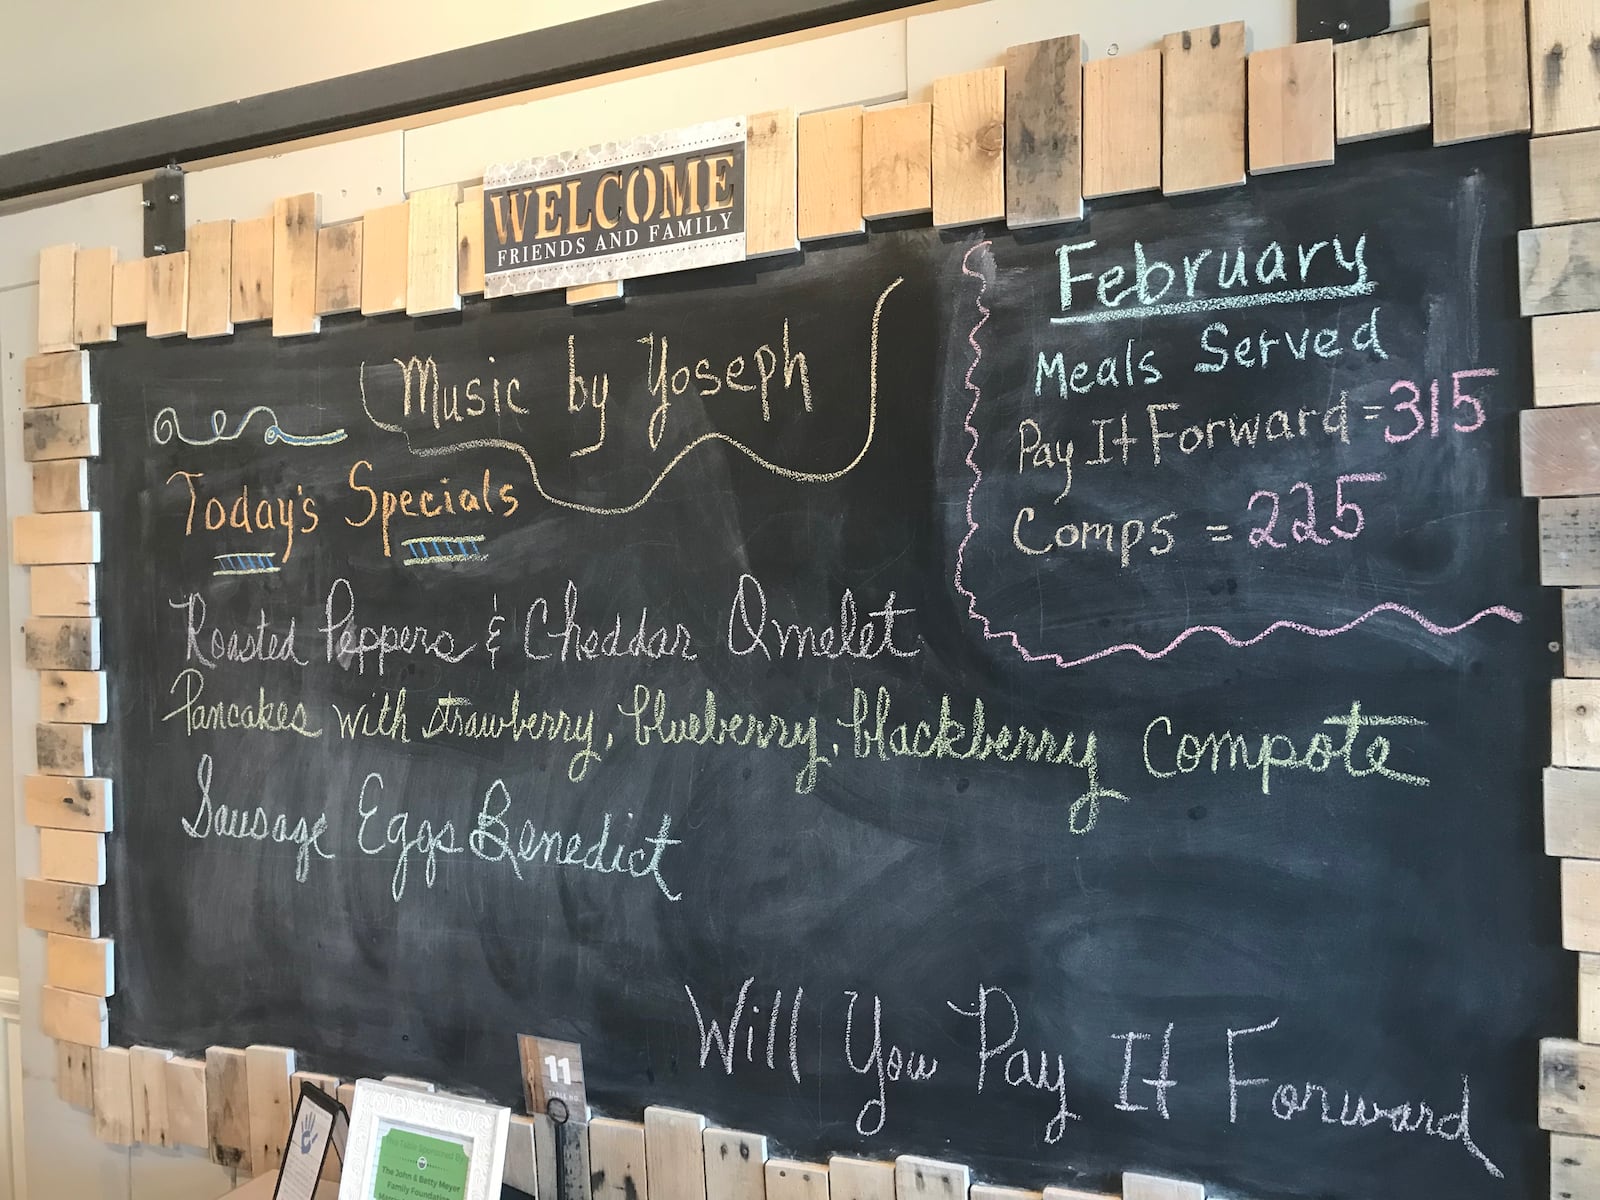 WELCOME
FRIENDS AND FAMILY
Music by Yoseph
Today's Specials
Roasted Peppers & Cheddar Omelet
Pancakes with strawberry, blueberry, blackberry Compote
Sausage Eggs Benedict
February
Meals Served
Pay It Forward = 315
Comps = 225
Will You Pay It Forward
11
TABLE NO.
Table Sponsored By
The John & Betty Meyer
Family Foundation